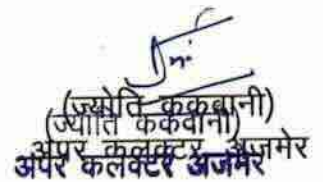 (ज्योति ककवानी)
(ज्योति ककवानी)
अपर कलक्टर अजमेर
अपर कलक्टर अजमेर